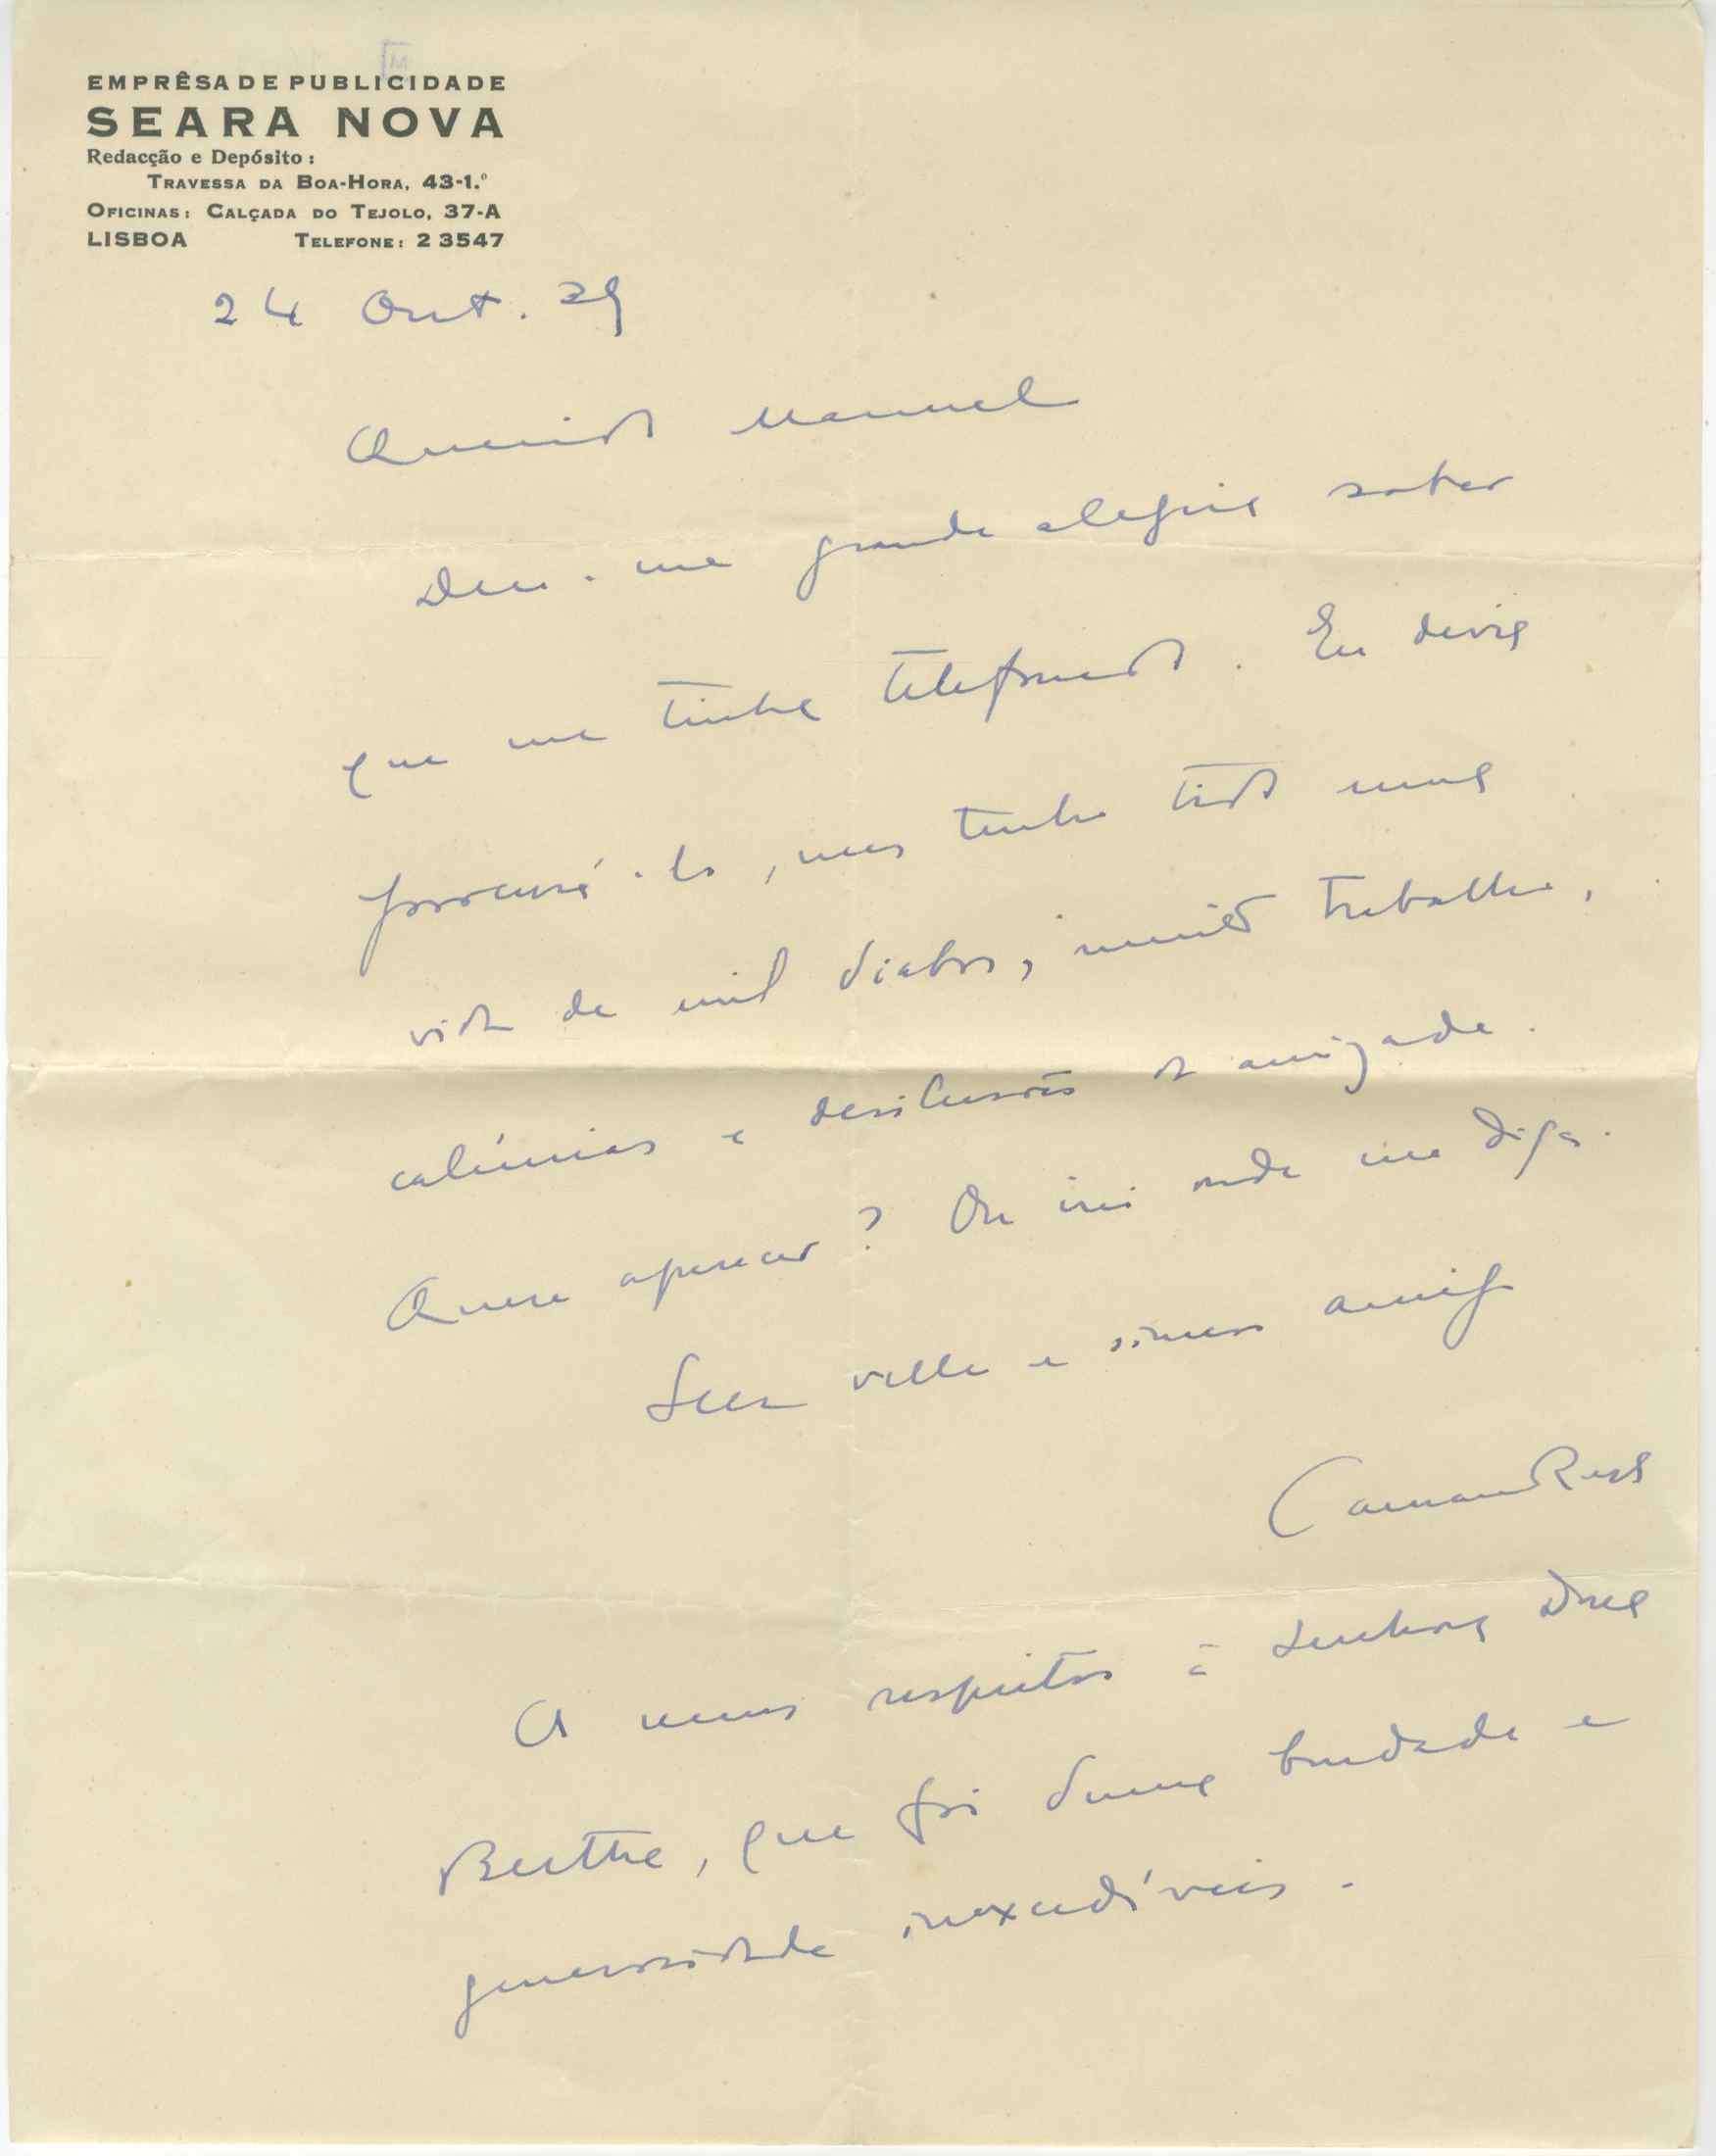 EMPRÊSA DE PUBLICIDADE
SEARA NOVA
Redacção e Depósito:
TRAVESSA DA BOA-HORA, 43-1.º
OFICINAS: CALÇADA DO TEJOLO, 37-A
LISBOA TELEFONE: 2 3547
24 Out. 39
Querido Manuel
Deu-me grande alegria saber
que me tinha telefonado. Eu devia
procurá-lo, mas tenho tido uma
vida de mil diabos, muito trabalho,
calúnias e desilusões da amizade.
Quere aparecer? Ou irei onde me diga.
Seu velho e sincero amigo
Camara Reys
Os meus respeitos à Senhora Dona
Berthe, que foi duma bondade e
generosidade inexcedíveis.